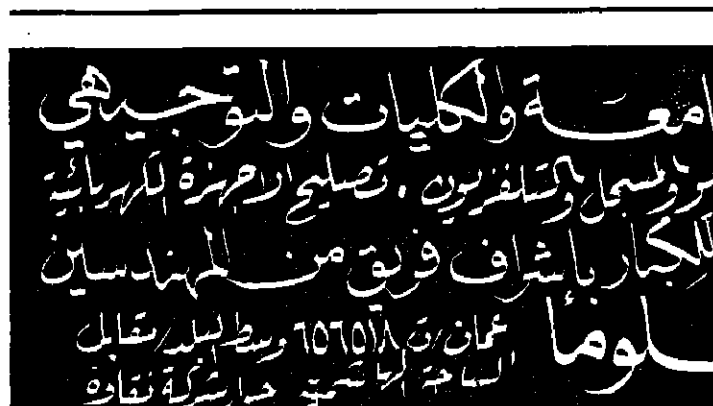 امعة والكليات والتوجيهي
والمسجل والتلفزيون . تصليح الاجهزة الكهربائية
للكبار بإشراف فريق من المهندسين
لوماً
عمان/ت ٦٥٦٥١٨ وسط البلد/مقابل
الساحة الهاشمية شركة نقاوة